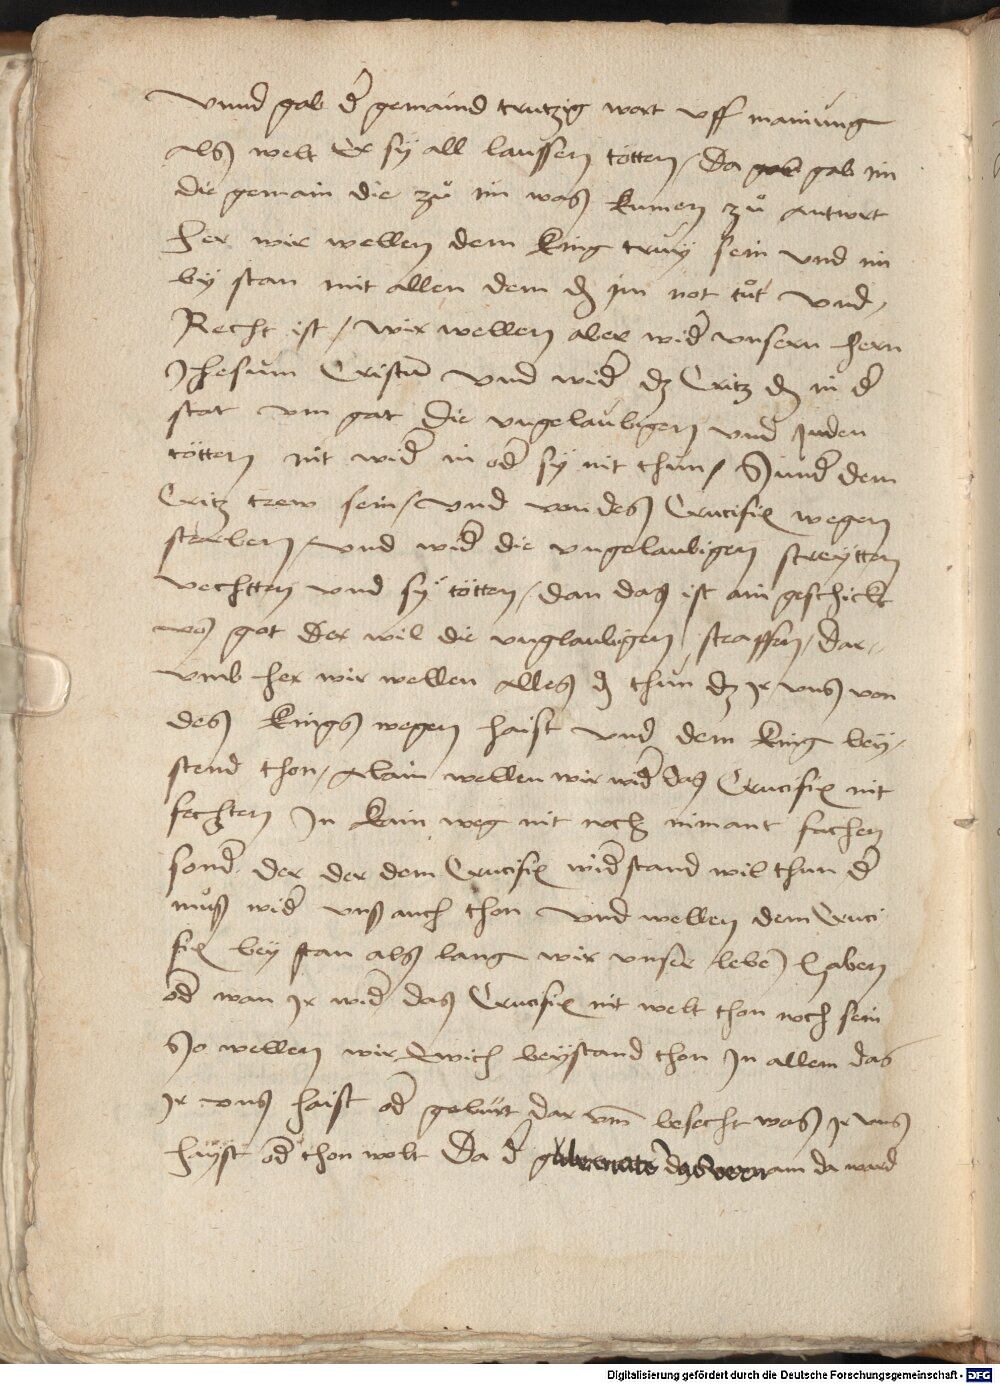 vnnd gab d' gemaind trutzig wort vff mainung
als welt Er sÿ all laussen tötten / Da gab gab im
die gemain die zů im was kumen zů antwrt
her wir wellen dem King truy sein vnd im
by stan mit allen dem dz im not tůt vnd
Recht ist / wir wellen aber wid' vnsern hern
Jhesum Cristum vnd wid' dz Critz dz in d'
stat vm gat Die vngelaubigen vnd Juden
tötten nit wid' in od' sÿ nit thun / Sund' dem
Critz trew sein / vnd von des Crucifix wegen
sterben / vnd wid' die vngelaubigen streÿtten
vechtten vnd sÿ tötten / dan das ist ain geschickt
von got Der wil die vnglaubigen straffen / Dar-
vmb her wir wellen alles dz thun dz Ir vns von
des Kings wegen haist vnd dem King beÿ
stend thon / Alain wellen wir wid' das Crucifix nit
fechten In kain weg nit noch nimant fachen
sond' der der dem Crucifix wid'stand wil thun d'
můß wid' vnß auch thon vnd wellen dem Cruci
fix beÿ stan als lang wir vnser lebe haben
od' wan Ir wid' das Crucifix nit welt thon noch sein
So wellen wir Ewich beÿstand thon In allem das
Ir vns haist od' gebürt dar vm besecht was Ir vns
haÿst od' thon wolt Da d' gubernator das vernam da ward
Digitalisierung gefördert durch die Deutsche Forschungsgemeinschaft - DFG